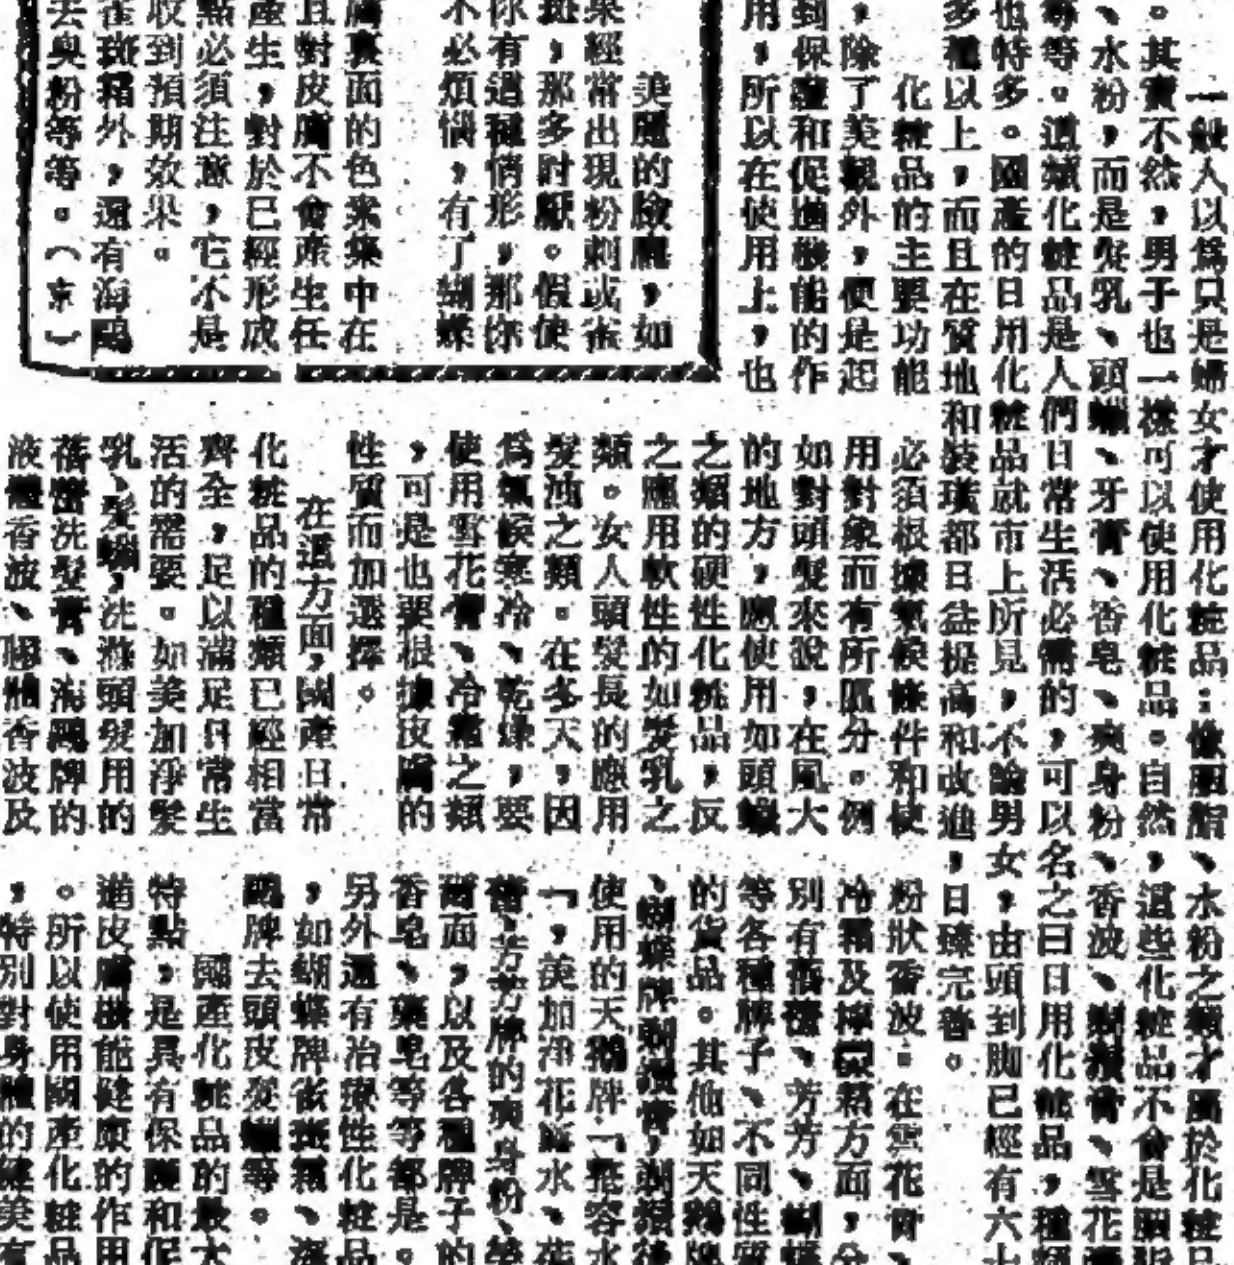 一般人以爲只是婦女才使用化粧品：像胭脂、水粉之類才屬於化粧品
。其實不然，男子也一樣可以使用化粧品。自然，這些化粧品不會是胭脂
、水粉，而是髮乳、頭蠟、牙膏、香皂、爽身粉、香波、剃鬚膏、雪花膏
等等。這類化粧品是人們日常生活必需的，可以名之曰日用化粧品，種類
也特多。國產的日用化粧品就市上所見，不論男女，由頭到脚已經有六十
多種以上，而且在質地和裝璜都日益提高和改進，日臻完善。
化粧品的主要功能
，除了美觀外，便是起
到保護和促進機能的作
用，所以在使用上，也
必須根據氣候條件和使
用對象而有所區分。例
如對頭髮來說，在風大
的地方，應使用如頭蠟
之類的硬性化粧品，反
之應用軟性的如髮乳之
類。女人頭髮長的應用
髮油之類。在冬天，因
爲氣候寒冷、乾燥，要
使用雪花膏、冷霜之類
，可是也要根據皮膚的
性質而加選擇。
在這方面，國產日常
化粧品的種類已經相當
齊全，足以滿足日常生
活的需要。如美加淨髮
乳、髮蠟，洗滌頭髮用的
蓓蕾洗髮膏、海鷗牌的
液體香波、香波及
粉狀香波。在雪花膏、
冷霜及檸檬霜方面，分
別有蓓蕾、芳芳、蝴蝶
等各種牌子、不同性質
的貨品。其他如天鵝牌
、蝴蝶牌剃鬚膏，剃鬚後
使用的天鵝牌「整容水
」，美加淨花露水、蓓
蕾、芳芳牌的爽身粉、
面，以及各種牌子的
香皂、藥皂等等都是。
另外還有治療性化粧品
，如蝴蝶牌雀斑霜、海
鷗牌去頭皮髮蠟等。
國產化粧品的最大
特點，是具有保護和促
進皮膚機能健康的作用
。所以使用國產化粧品
，特別對身體的健美有
美麗的臉龐，如
果經常出現粉刺或雀
斑，那多討厭。假使
你有這種情形，那你
不必煩惱，有了蝴蝶
膚表面的色素集中在
且對皮膚不會產生任
產生，對於已經形成
點必須注意，它不是
收到預期效果。
雀斑霜外，還有海鷗
去臭粉等等。（京）